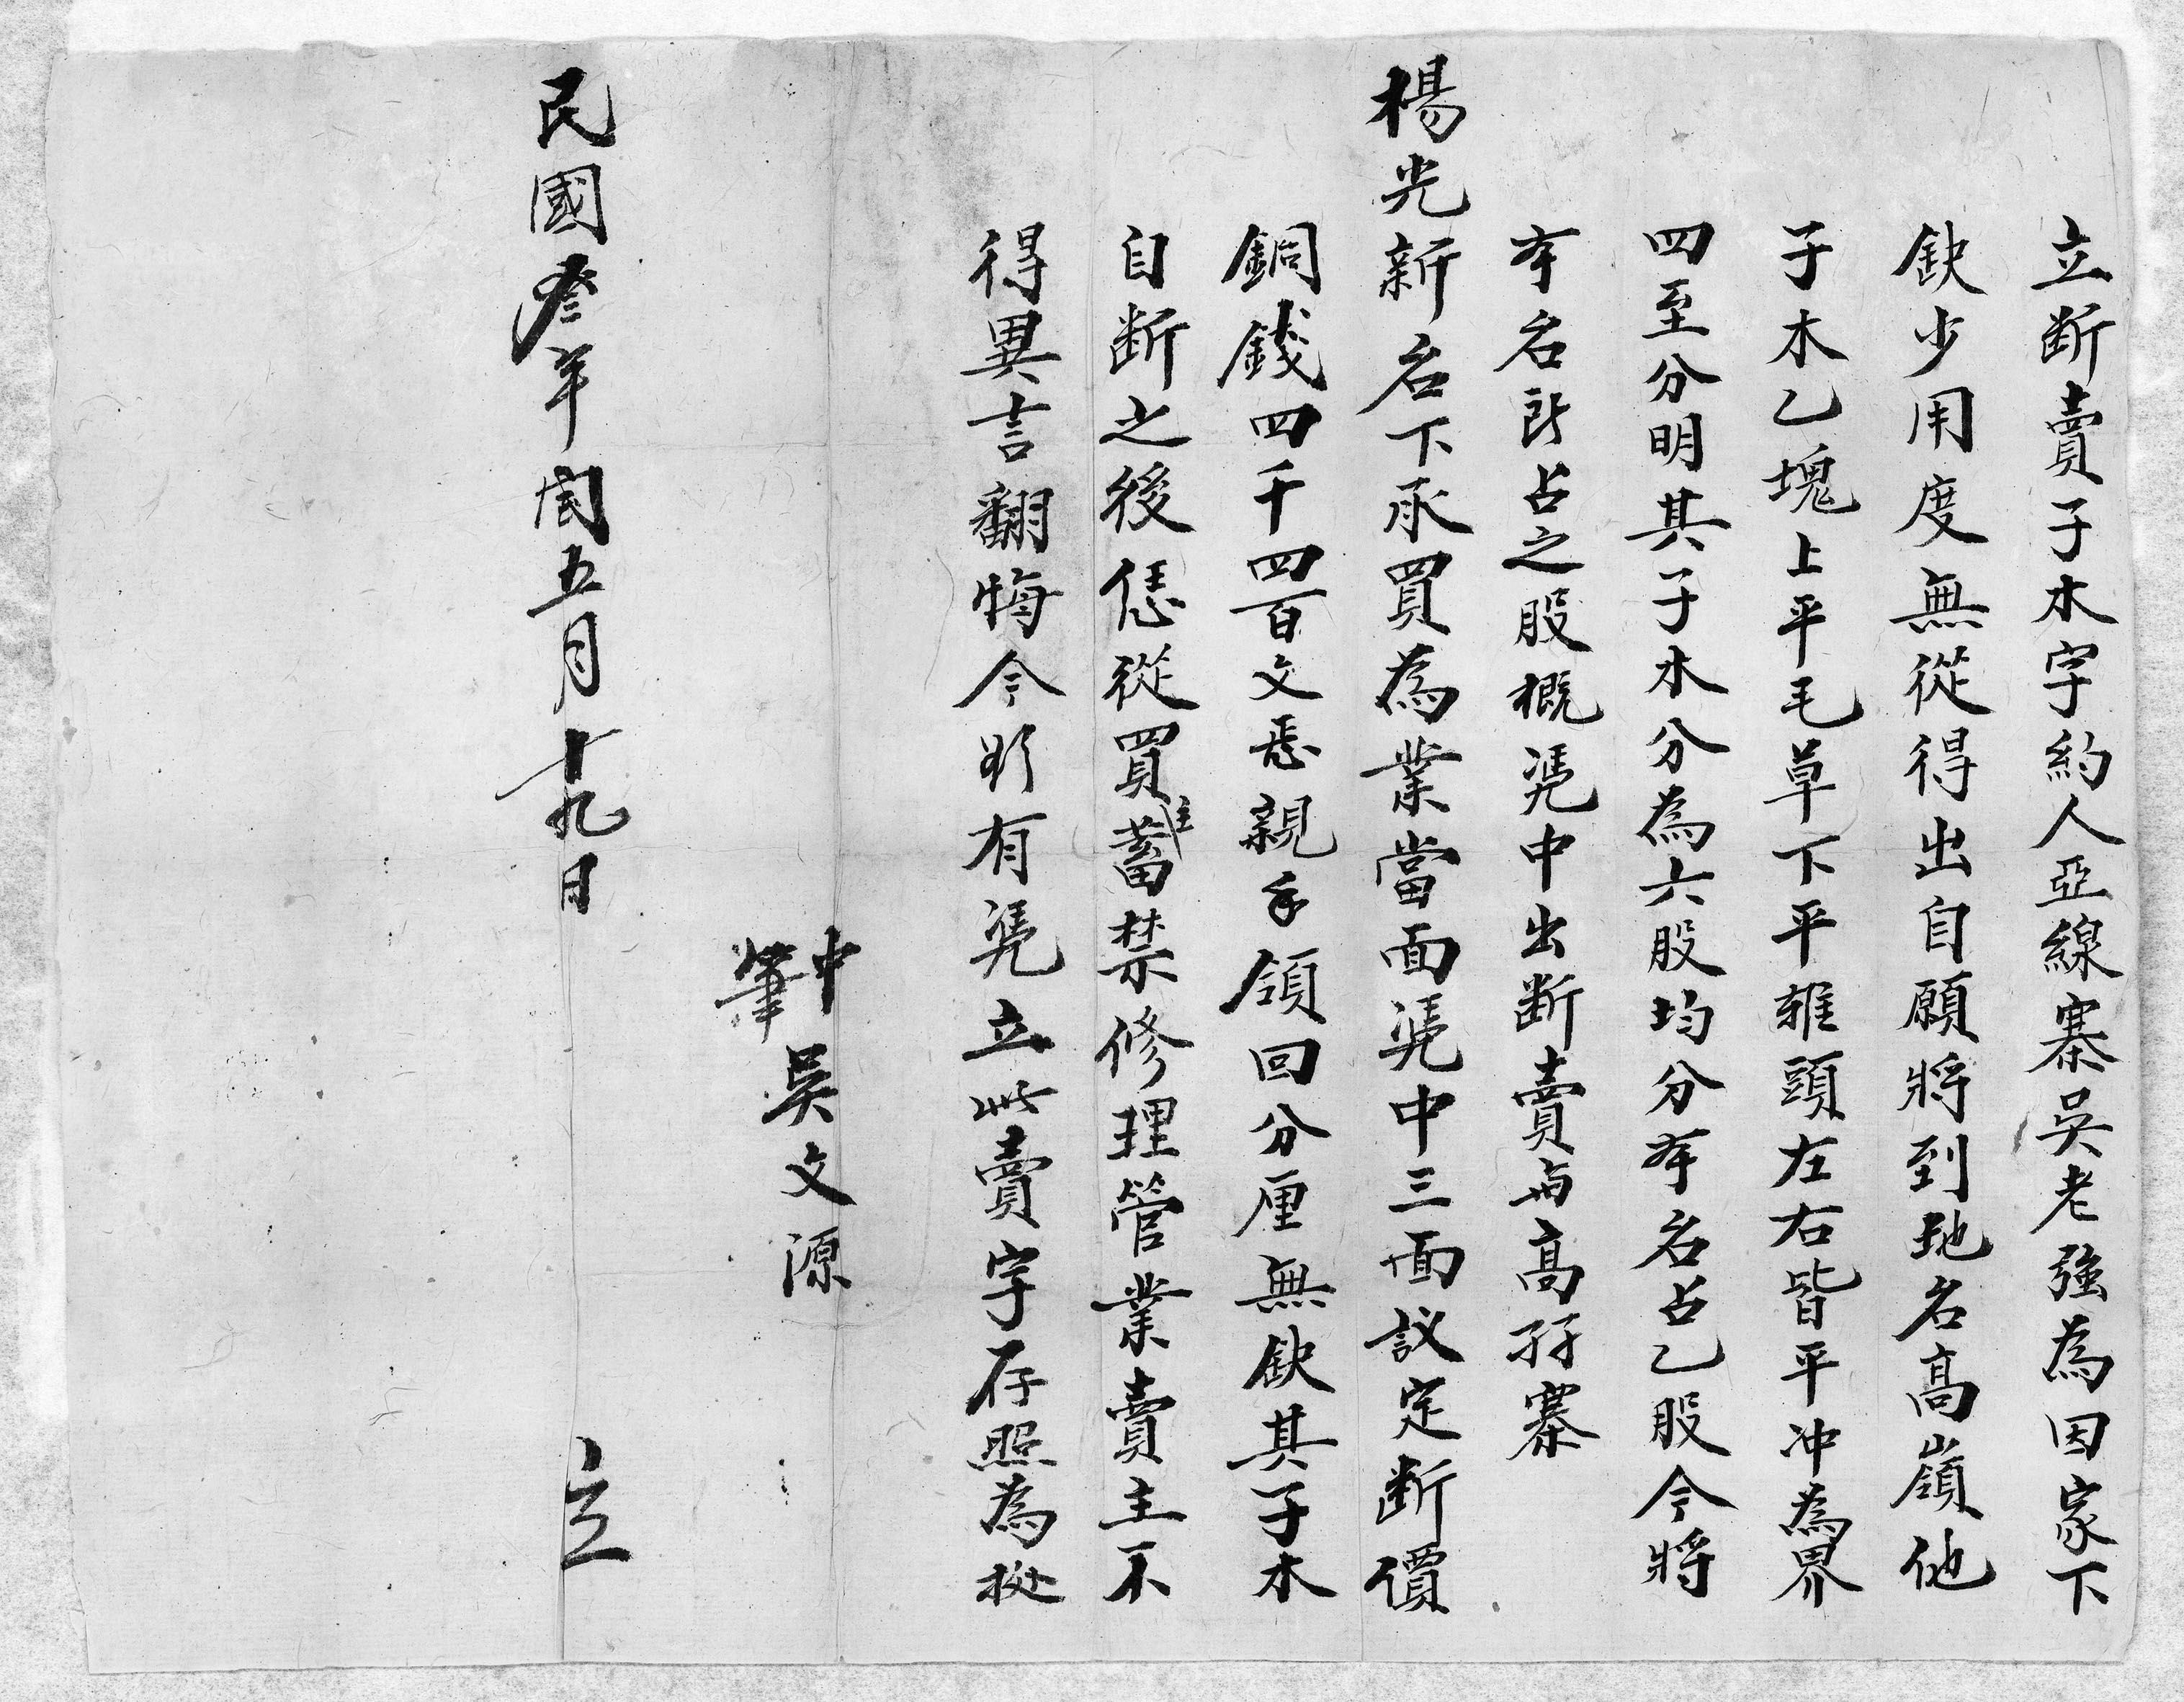 立断賣子木字約人亞線寨吳老強為因家下
缺少用度無從得出自願將到地名高嶺他
子木乙塊上平毛草下平雅頭左右皆平冲為界
四至分明其子木分為六股均分本名占乙股今將
本名所占之股概凴中出断賣與高孖寨
楊光新名下承買為業當面凴中三面議定断價
銅錢四千四百文悉親手領回分厘無缺其子木
自断之後恁從買主蓄禁修理管業賣主不
得異言翻悔今欲有凴立此賣字存照為據
中筆 吳文源
民國叁年閏五月十九日 立